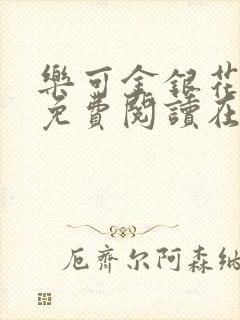 樂可金銀花
免費閱讀在
厄齊尔阿森納